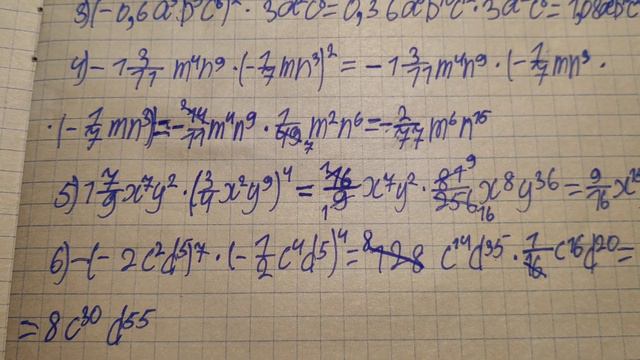 3) (-0,6a³b⁵c⁶)² · 3a²c⁸ = 0,36a⁶b¹⁰c¹² · 3a²c⁸ = 1,08a⁸b
4) -1 3/11 m⁴n⁹ · (-1/7 mn³)² = -1 3/11 m⁴n⁹ · (-1/7 mn³ ·
· (-1/7 mn³) = -14/11 m⁴n⁹ · 1/49 m²n⁶ = -2/77 m⁶n¹⁵
5) 1 7/9 x⁷y² · (3/4 x²y⁹)⁴ = 16/9 x⁷y² · 81/256 x⁸y³⁶ = 9/16 x¹⁵
6) -(-2c²d⁵)⁷ · (-1/2 c⁴d⁵)⁴ = 128 c¹⁴d³⁵ · 1/16 c¹⁶d²⁰ =
= 8c³⁰d⁵⁵